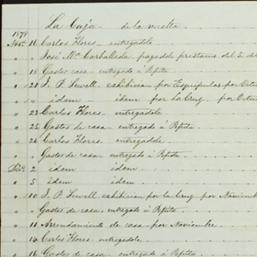 La Caja de la vuelta
1879
Nov. 16 Carlos Flores entregadole
" " José Ma. Carballeda pagadole prestamo del 2 de
" 18 Gastos casa entregado á Pepita
" 21 J. P. Sewell exhibicion por Esquipulas por Octu
" " idem idem por la Cruz por Octu
" 22 Carlos Flores entregadole
" 25 Gastos de casa entregado á Pepita
" 28 Carlos Flores entregadole
" " Gastos de casa entregado á Pepita
Dic. 2 idem idem
" 5 idem idem
" 10 J. P. Sewell exhibicion por la Cruz por Noviembre
" " Gastos de casa entregado á Pepita
" 11 Arrendamiento de casa por Noviembre
" 14 Carlos Flores entregadole
" 16 Gastos de casa entregado á Pepita